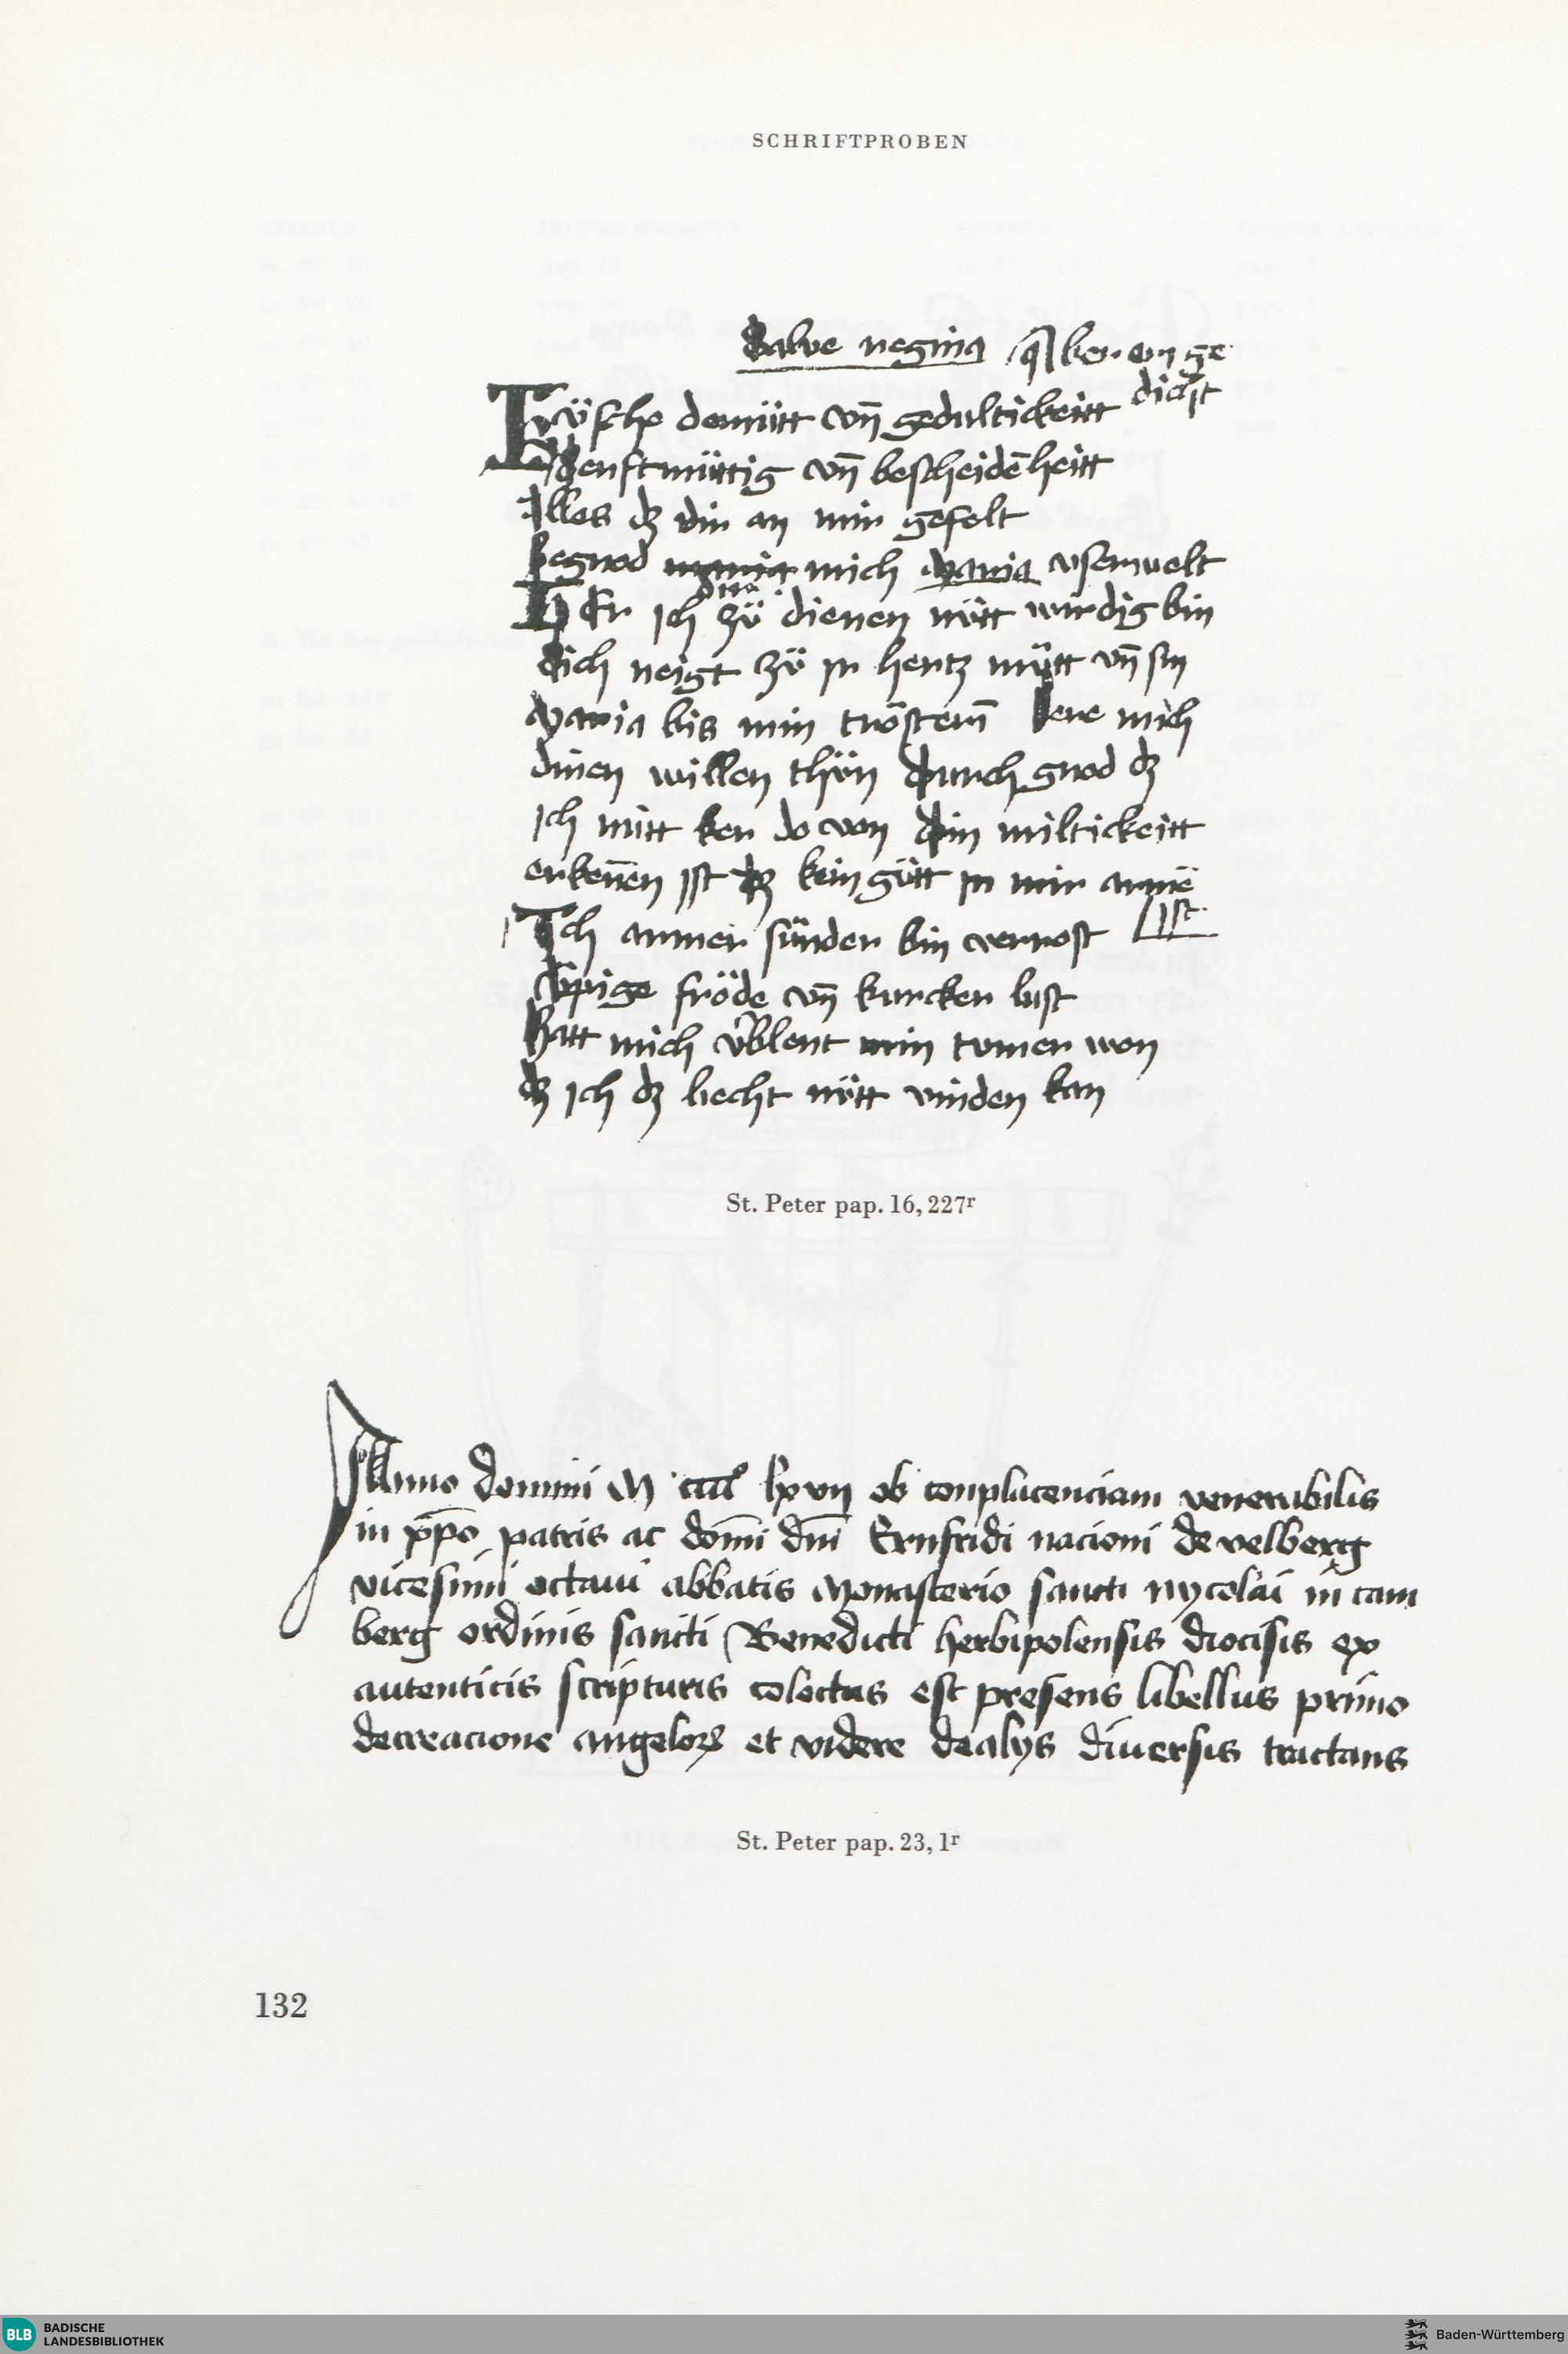 SCHRIFTPROBEN
Salve regina ker ein ge
dicht
küsche demütt vn̄ gedultickeitt
Senftmüttig vn̄ bescheidēheitt
Alles dz din an mir gefelt
begnod mich Maria vserwelt
Der ich zü dienen nütt wirdig bin
dich neigt zü ir hertz mütt vn̄ sin
Maria bis min trösterī lere mich
dinen willen thün durch gnod dz
ich mitt ker do von din miltickeitt
erkenēn ist dz kein gütt in mir armē
ist
Ich armer sünder bin verrost
üpige fröde vn̄ kurcker lust
Hatt mich v̈blent min tumer won
dz ich dz liecht nütt vinden kan
St. Peter pap. 16, 227r
Anno domini M cccc lxvij ob conplacenciam venerabilis
in xp̄o patris ac domī dnī Ernfridi nacioni de velberg
vicesimi octaui abbatis Monasterio sancti nycolai in cam
berg ordinis sancti Benedicti herbipolensis diocisis ex
autenticis scripturis colectus est presens libellus primo
decreacione angelorꝝ et videre dealys diuersis tractans
St. Peter pap. 23, 1r
132
BLB BADISCHE
LANDESBIBLIOTHEK
Baden-Württemberg